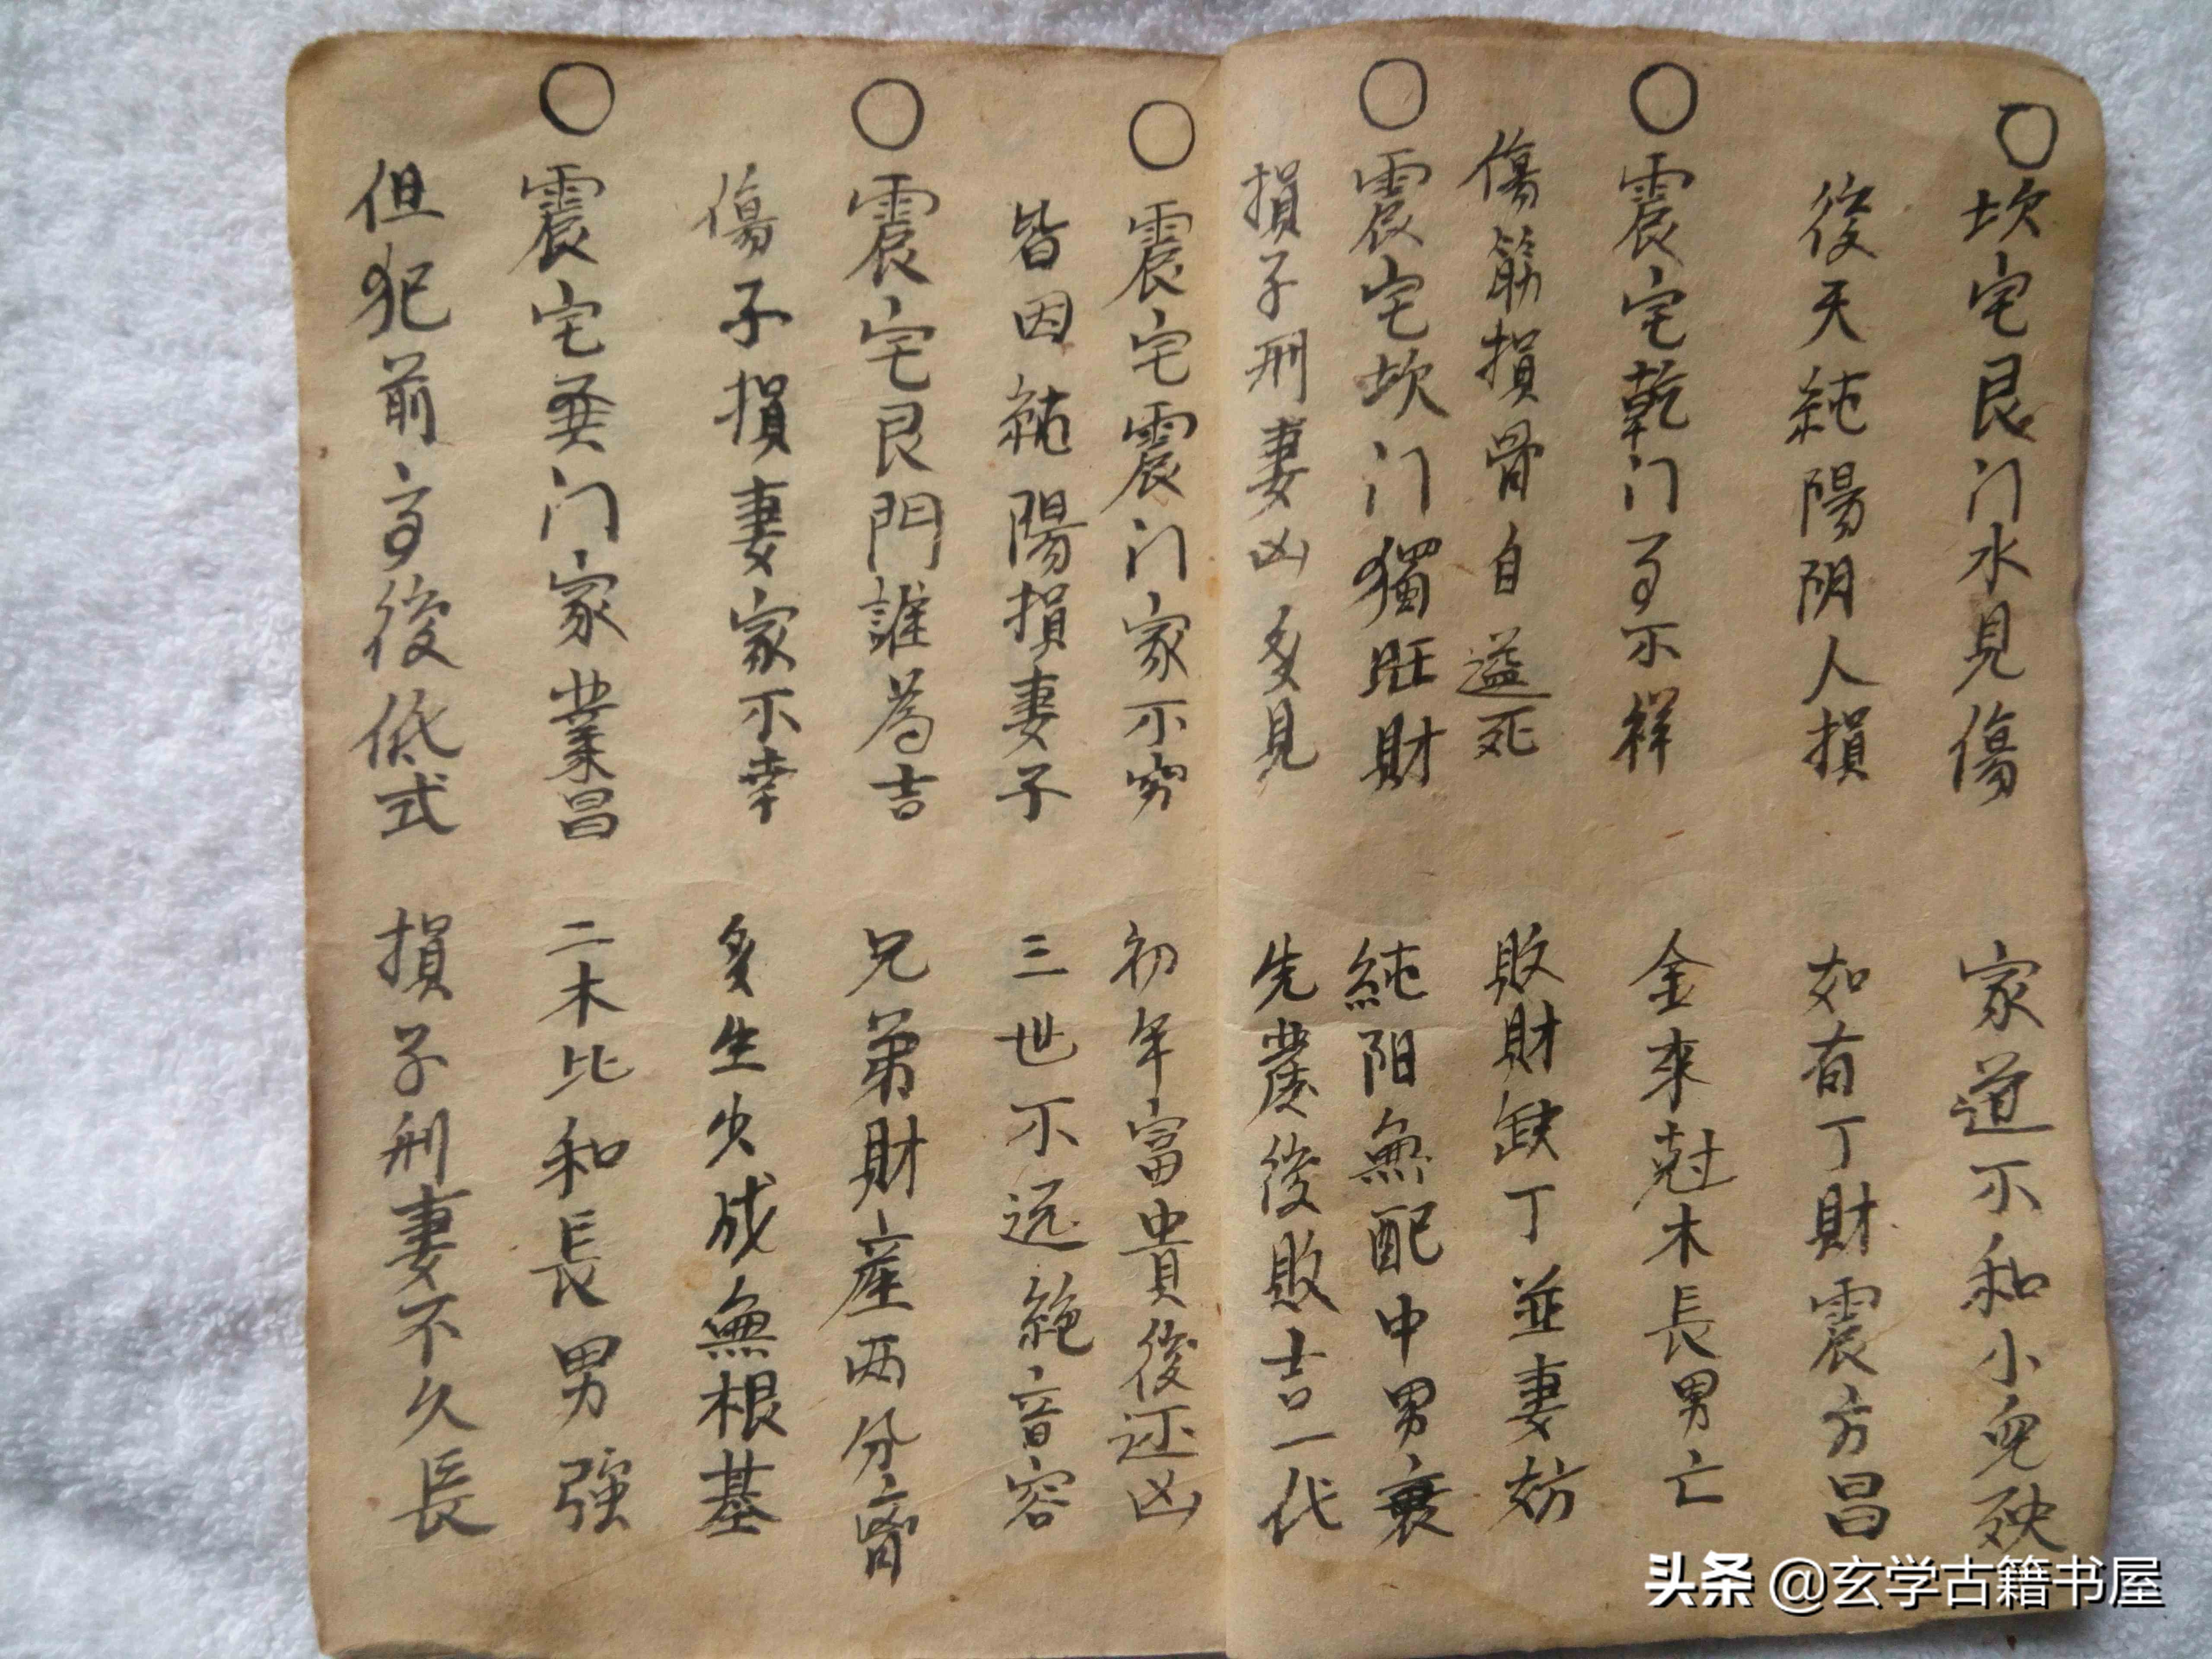 ○坎宅艮门水見傷 家道不和小兒殃
後天純陽阴人損 如有丁財震方昌
○震宅乾门了不祥 金來尅木長男亡
傷筋損骨自溢死 敗財缺丁並妻妨
○震宅坎门獨旺財 純阳無配中男衰
損子刑妻凶多見 先農後敗吉一代
○震宅震门家不穷 初年富貴後还凶
皆因純陽損妻子 三世不远絕音容
○震宅艮門誰為吉 兄弟財產两分
傷子損妻家不幸 多生少成無根基
○震宅巽门家業昌 二木比和長男強
但犯前高後低式 損子刑妻不久長
头条 @玄学古籍书屋